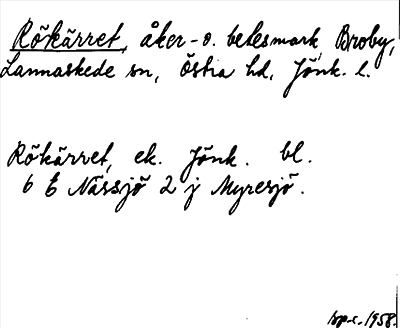 Rökärret, åker- o. betesmark, Broby,
Lannaskede sn, Östra hd, Jönk. l.
Rökärret, ek. Jönk. bl.
6 E Nässjö 2 j Myresjö.
sp.c. 1958.